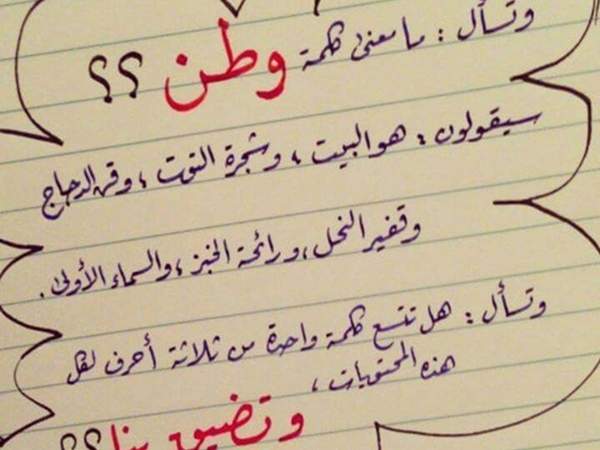 وتسأل : ما معنى كلمة وطن ؟؟
سيقولون : هو البيت ، وشجرة التوت ، وقن الدجاج
وقفير النحل ، ورائحة الخبز ، والسماء الأولى .
وتسأل : هل تتسع كلمة واحدة من ثلاثة أحرف لكل
هذه المحتويات ،
وتضيق بنا ؟؟